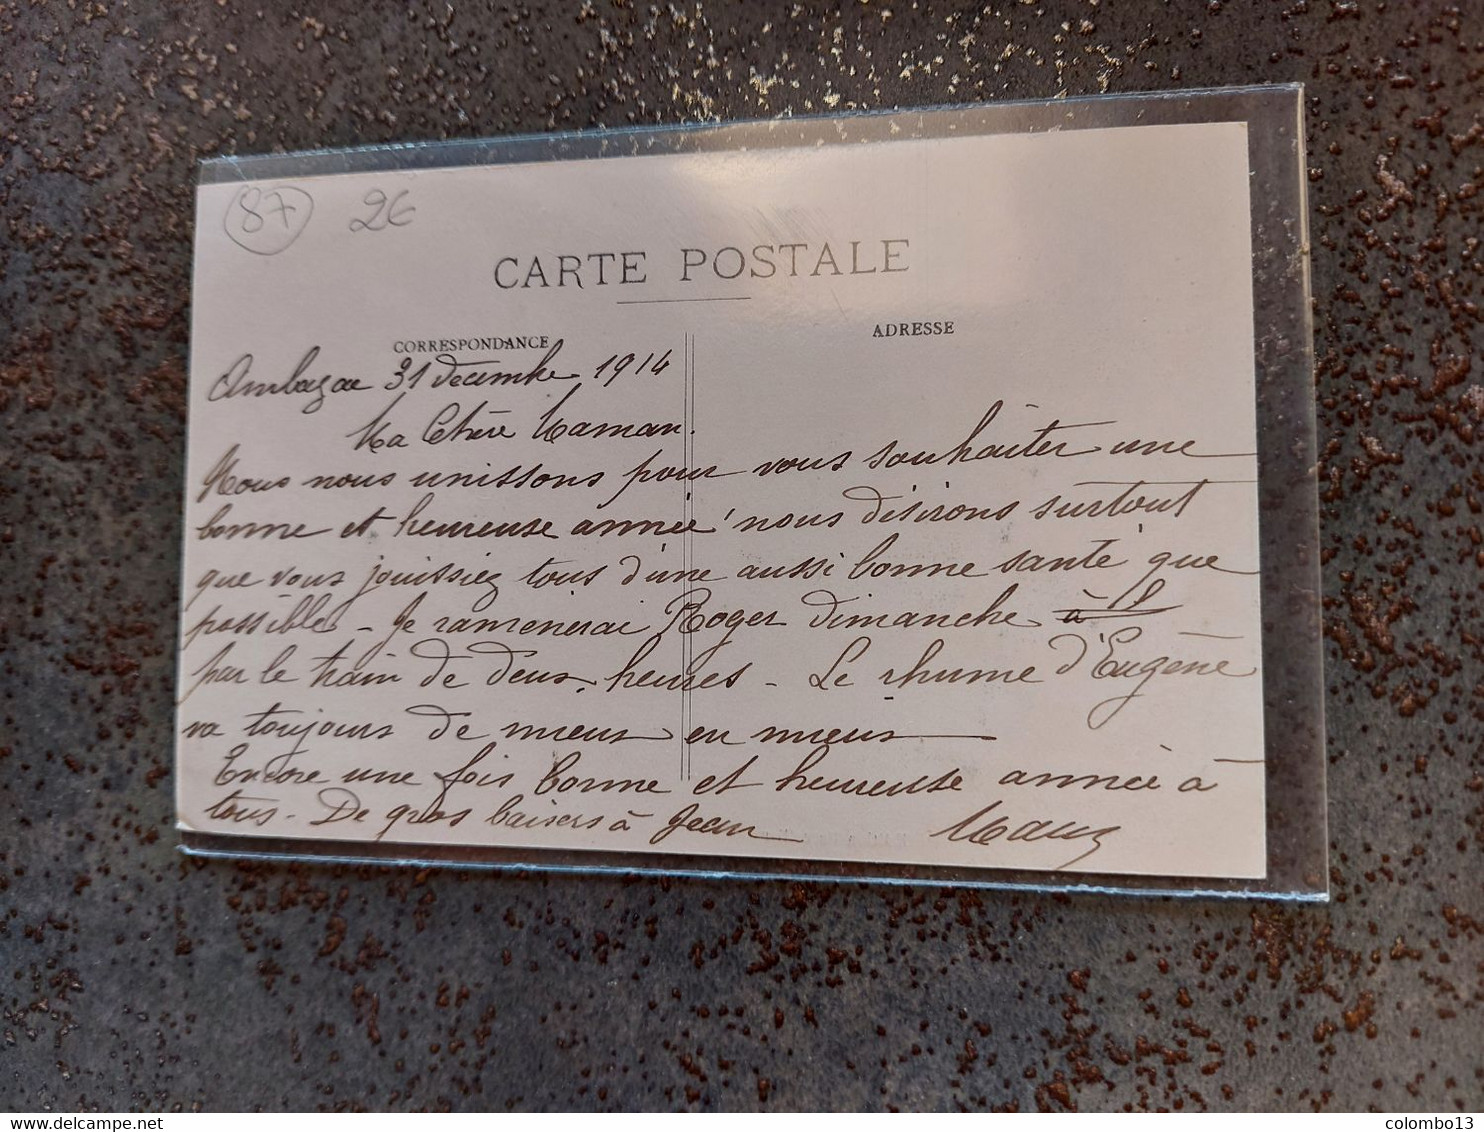 87 2€
CARTE POSTALE
CORRESPONDANCE
ADRESSE
Ambazac 31 Decembre 1914
Ma Chère Maman.
Nous nous unissons pour vous souhaiter une
bonne et heureuse année, nous désirons surtout
que vous jouissiez tous d'une aussi bonne santé que
possible - Je ramenerai Roger dimanche à
par le train de deux heures - Le rhume d'Eugène
va toujours de mieux en mieux
Encore une fois bonne et heureuse année à
tous - De gros baisers à Jean
colombo13